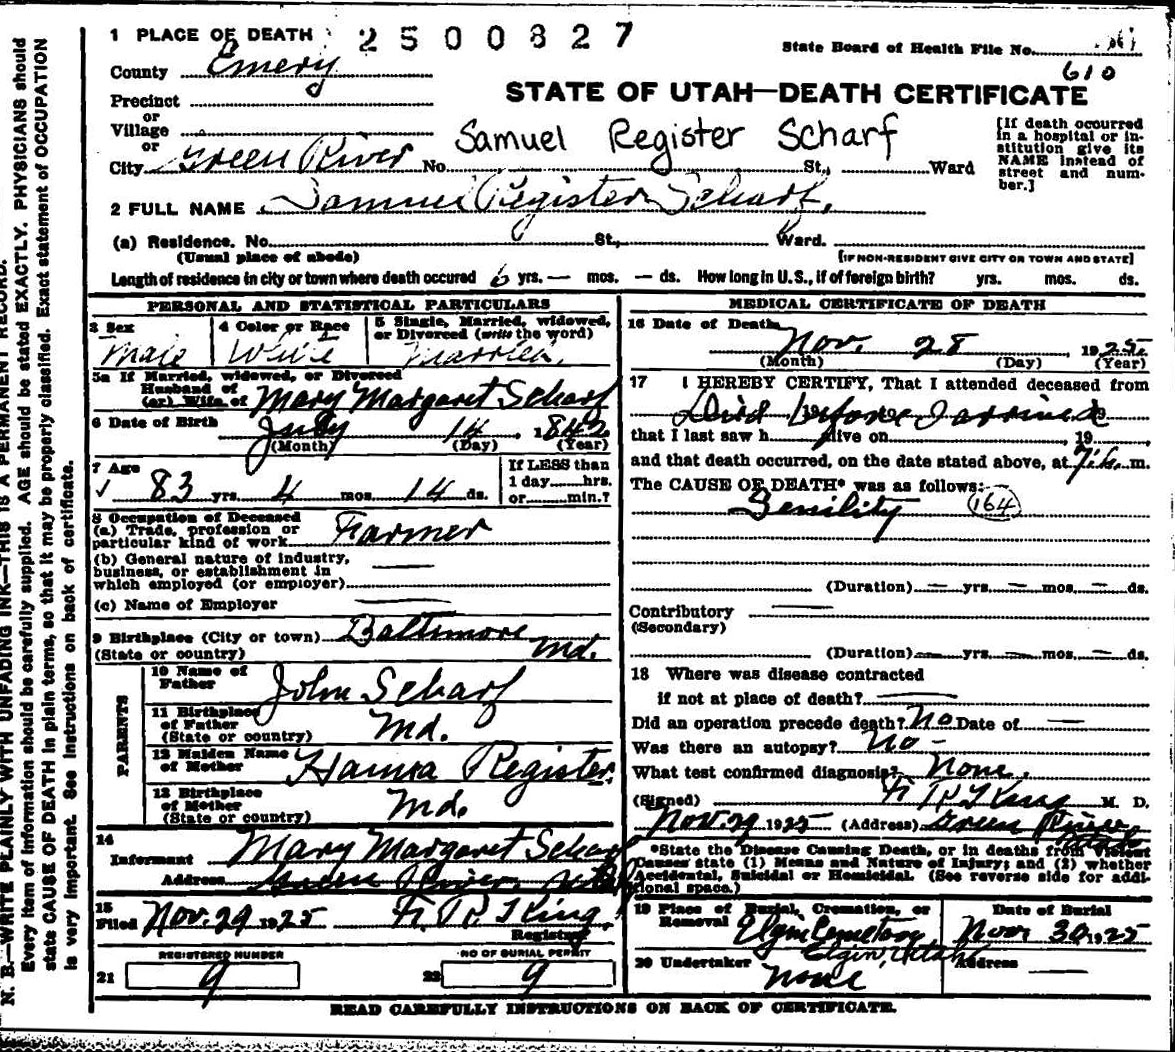 1 PLACE OF DEATH 2500827
State Board of Health File No.
610
County Emery
STATE OF UTAH—DEATH CERTIFICATE
Precinct
or
Village
or
City Green River No. St., Ward
Samuel Register Scharf
[If death occurred in a hospital or institution give its NAME instead of street and number.]
2 FULL NAME Samuel Register Scharf,
(a) Residence. No. St., Ward.
(Usual place of abode) [IF NON-RESIDENT GIVE CITY OR TOWN AND STATE]
Length of residence in city or town where death occured 6 yrs. — mos. — ds. How long in U.S., if of foreign birth? yrs. mos. ds.
PERSONAL AND STATISTICAL PARTICULARS
3 Sex
Male
4 Color or Race
White
5 Single, Married, widowed, or Divorced (write the word)
Married.
5a If Married, widowed, or Divorced
Husband of
(or) Wife of Mary Margaret Scharf
6 Date of Birth July 14, 1842
(Month) (Day) (Year)
7 Age
✓ 83 yrs. 4 mos. 14 ds.
If LESS than
1 day hrs.
or min.?
8 Occupation of Deceased
(a) Trade, profession or
particular kind of work Farmer
(b) General nature of industry,
business, or establishment in
which employed (or employer) —
(c) Name of Employer —
9 Birthplace (City or town) Baltimore
(State or country) Md.
PARENTS
10 Name of
Father John Scharf
11 Birthplace
of Father
(State or country) Md.
12 Maiden Name
of Mother Register
13 Birthplace
of Mother
(State or country) Md.
14
Informant Mary Margaret Scharf
Address Green River, Utah
15
Filed Nov. 29 1925 King
Registrar
REGISTERED NUMBER
21 9
NO OF BURIAL PERMIT
22 9
MEDICAL CERTIFICATE OF DEATH
16 Date of Death Nov. 28 1925
(Month) (Day) (Year)
17 I HEREBY CERTIFY, That I attended deceased from
Died before I arrived 19
that I last saw h alive on , 19
and that death occurred, on the date stated above, at m.
The CAUSE OF DEATH* was as follows:
Senility 164
(Duration) — yrs. — mos. — ds.
Contributory —
(Secondary)
(Duration) — yrs. — mos. — ds.
18 Where was disease contracted
if not at place of death? —
Did an operation precede death? No Date of —
Was there an autopsy? No -
What test confirmed diagnosis? None.
(Signed) King M. D.
Nov. 29 1925 (Address) Green River
Utah
*State the Disease Causing Death, or in deaths from Violent
Causes state (1) Means and Nature of Injury; and (2) whether
Accidental, Suicidal or Homicidal. (See reverse side for additional space.)
19 Place of Burial, Cremation, or
Removal Elgin Cemetery
Elgin, Utah
Date of Burial
Nov 30 1925
20 Undertaker none
Address —
READ CAREFULLY INSTRUCTIONS ON BACK OF CERTIFICATE.
N. B.—WRITE PLAINLY WITH UNFADING INK—THIS IS A PERMANENT RECORD.
Every item of information should be carefully supplied. AGE should be stated EXACTLY. PHYSICIANS should
state CAUSE OF DEATH in plain terms, so that it may be properly classified. Exact statement of OCCUPATION
is very important. See instructions on back of certificate.